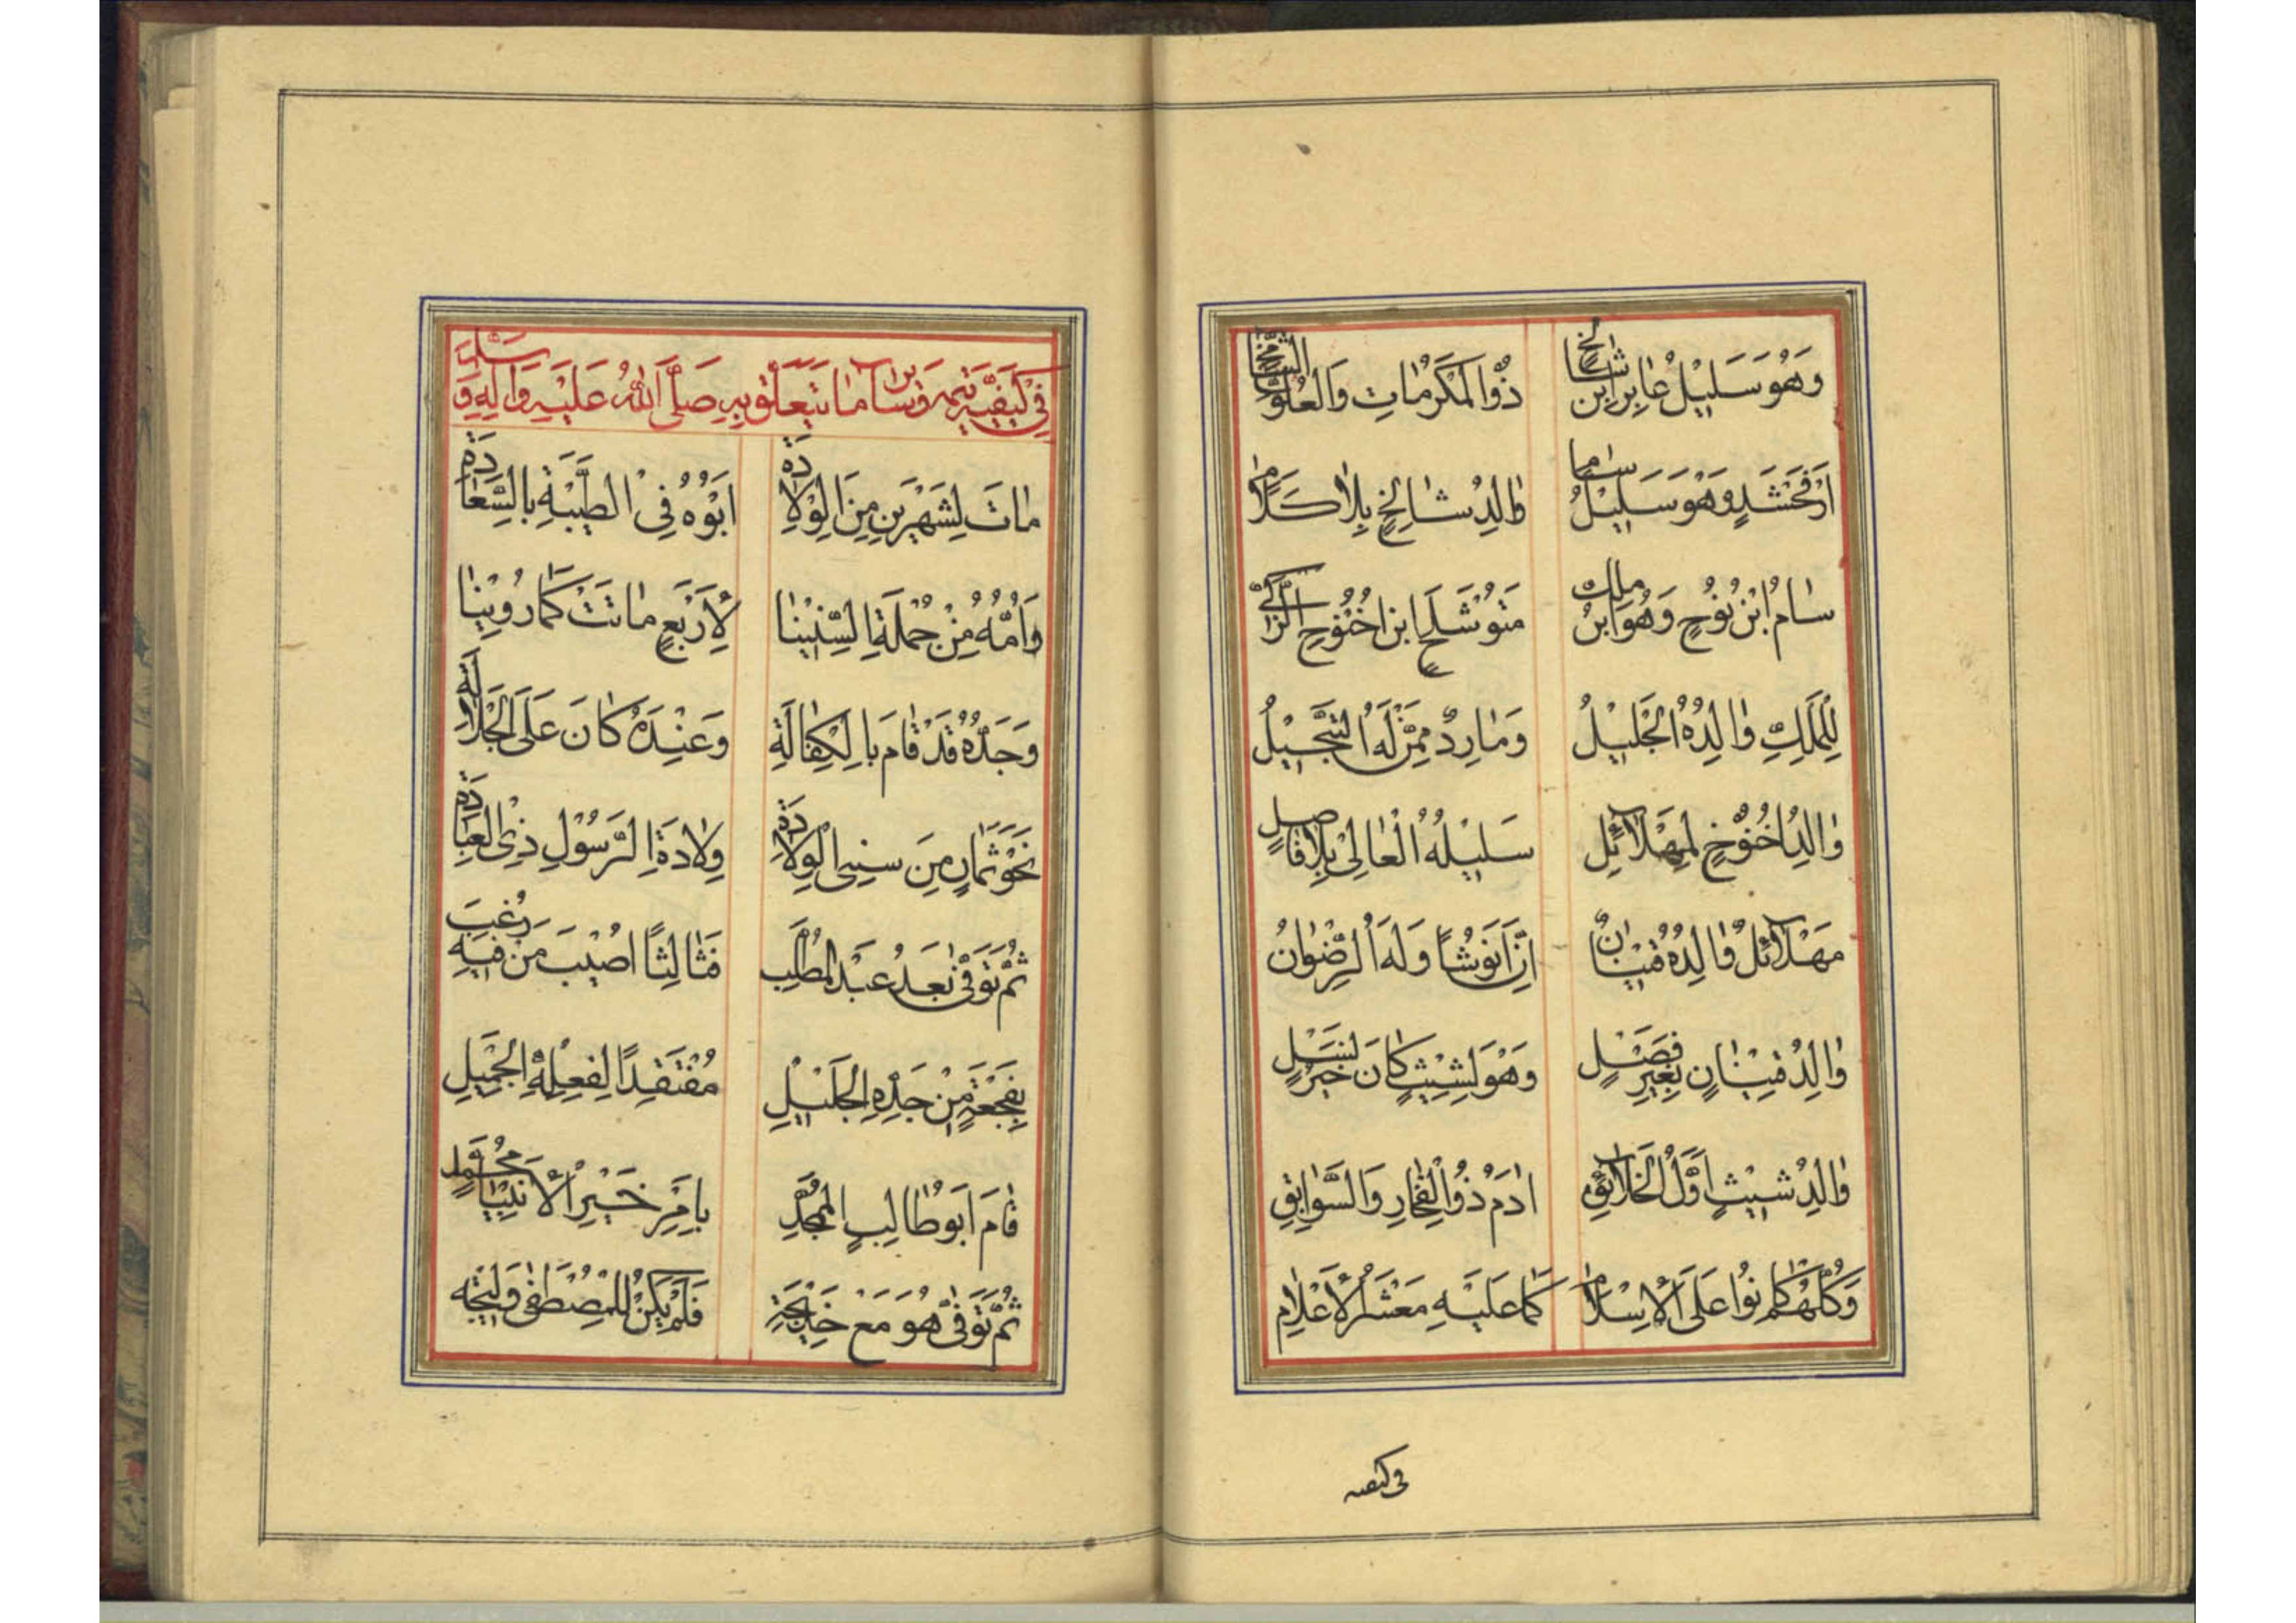 وَهُوَ سَلِيْلُ عٰابِرِ ابْنِ شٰالِخٍ ذُوالْمَكْرُمٰاتِ وَالْعُلُوِّ الشّٰامِخِ
اَرْفَخْشَدٍ وَهْوَ سَلِيْلُ سٰامٍ وٰالِدُ شٰالِخٍ بِلاٰ كَلاٰمٍ
سٰامُ ابْنُ نُوْحٍ وَهُوَ ابْنُ مَلِكِ مَتُوْشَلَحِ ابْنِ اخْنُوْخِ الزَّكِيِّ
لِلْمَلِكِ وٰالِدُهُ الْجَلِيْلُ وَمٰارِدٌ مِمَّنْ لَهُ التَّبْجِيْلُ
وٰالِدُ اخْنُوْخٍ لِمِهْلاٰئِلِ سَلِيْلُهُ الْعٰالِيْ بِلاٰ فٰاصِلٍ
مَهْلاٰئِلٌ وٰالِدُهُ قَيْنٰانٌ اِنَّ اَنُوشًا وَلَهُ الرِّضْوٰانُ
وٰالِدُ قَيْنٰانٍ بِغَيْرِ فَصْلٍ وَهْوَ لِشِيْثٍ كٰانَ خَيْرَ نَسْلٍ
وٰالِدُ شِيْثٍ اَوَّلُ الْخَلاٰئِقِ اٰدَمُ ذُوالْفِخٰارِ وَالسَّوٰابِقِ
وَكُلُّهُمْ كٰانُوْا عَلَى الْاِسْلاٰمِ كَمٰا عَلَيْهِ مَعْشَرُ الْاَعْلاٰمِ
فی کیفیه
فِيْ كَيْفِيَّةِ يُتْمِهِ وَسٰائِرِ مٰا يَتَعَلَّقُ بِهِ صَلَّى اللّٰهُ عَلَيْهِ وَاٰلِهِ وَسَلَّمَ
مٰاتَ لِشَهْرَيْنِ مِنَ الْوِلاٰدَةِ اَبُوْهُ فِيْ الطَّيْبَةِ بِالسَّعٰادَةِ
وَاُمُّهُ مِنْ جُمْلَةِ السِّنِيْنٰا لِاَرْبَعٍ مٰاتَتْ كَمٰا رُوِيْنٰا
وَجَدُّهُ قَدْ قٰامَ بِالْكِفٰالَةِ وَعِنْدَهُ كٰانَ عَلَى الْجَلاٰلَةِ
نَحْوَ ثَمٰانٍ مِنَ سِنِيِ الْوِلاٰدَةِ وِلاٰدَةِ الرَّسُوْلِ ذِى الْعِبٰادَةِ
ثُمَّ تُوُفِّيَ بَعْدُ عَبْدُ الْمُطَّلِبِ فَثٰالِثًا اُصِيْبَ مَنْ فِيْهِ رُغِبَ
بِفَجْعَةٍ مِنْ جَدِّهِ الْجَلِيْلِ مُفْتَقِدًا لِفِعْلِهِ الْجَمِيْلِ
قٰامَ اَبُوْ طٰالِبٍ الْمُمَجَّدُ بِاَمْرِ خَيْرِ الْاَنْبِيٰا مُحَمَّدٍ
ثُمَّ تُوُفِّيَ هُوَ مَعْ خَدِيْجَةِ فَلَمْ يَكُنْ لِلْمُصْطَفٰى وَلِيْجَة